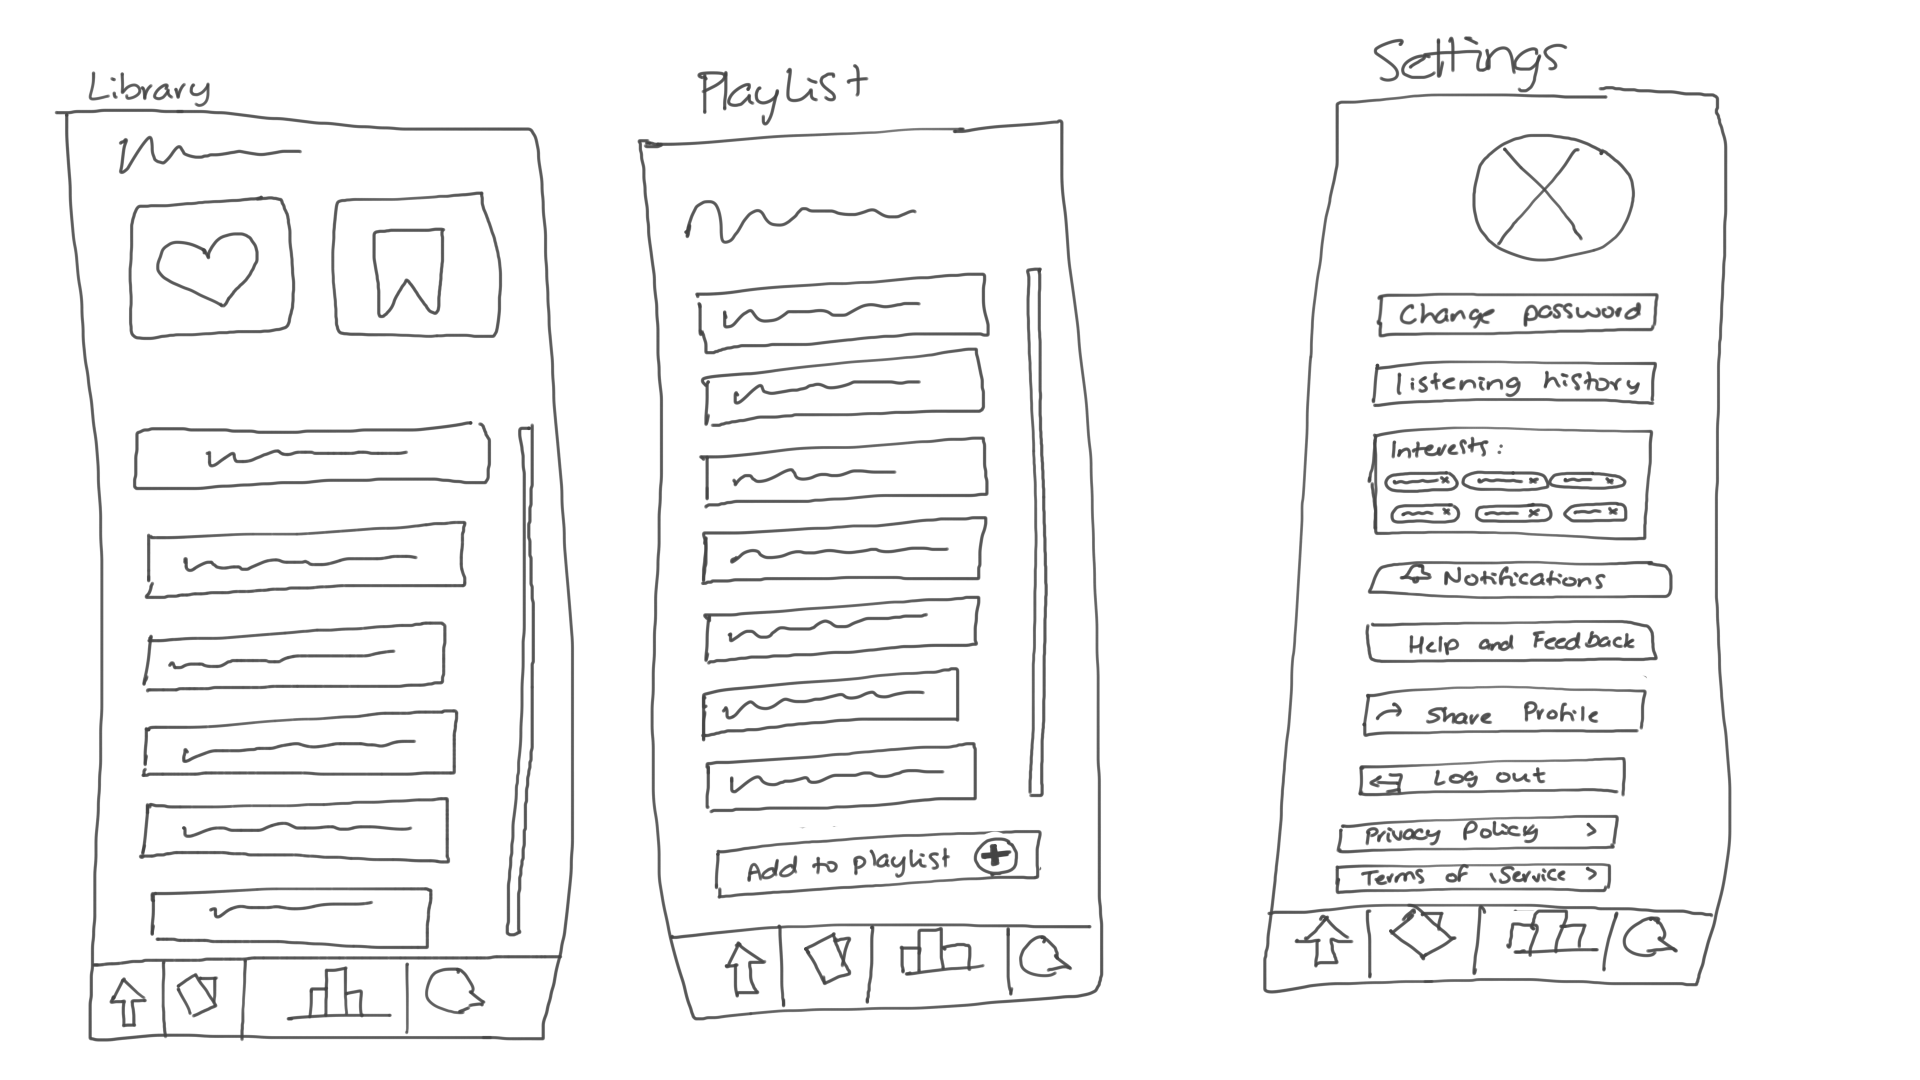 Library
Playlist
Add to playlist
Settings
Change password
listening history
Interests:
Notifications
Help and Feedback
Share Profile
Log out
Privacy Policy >
Terms of Service >